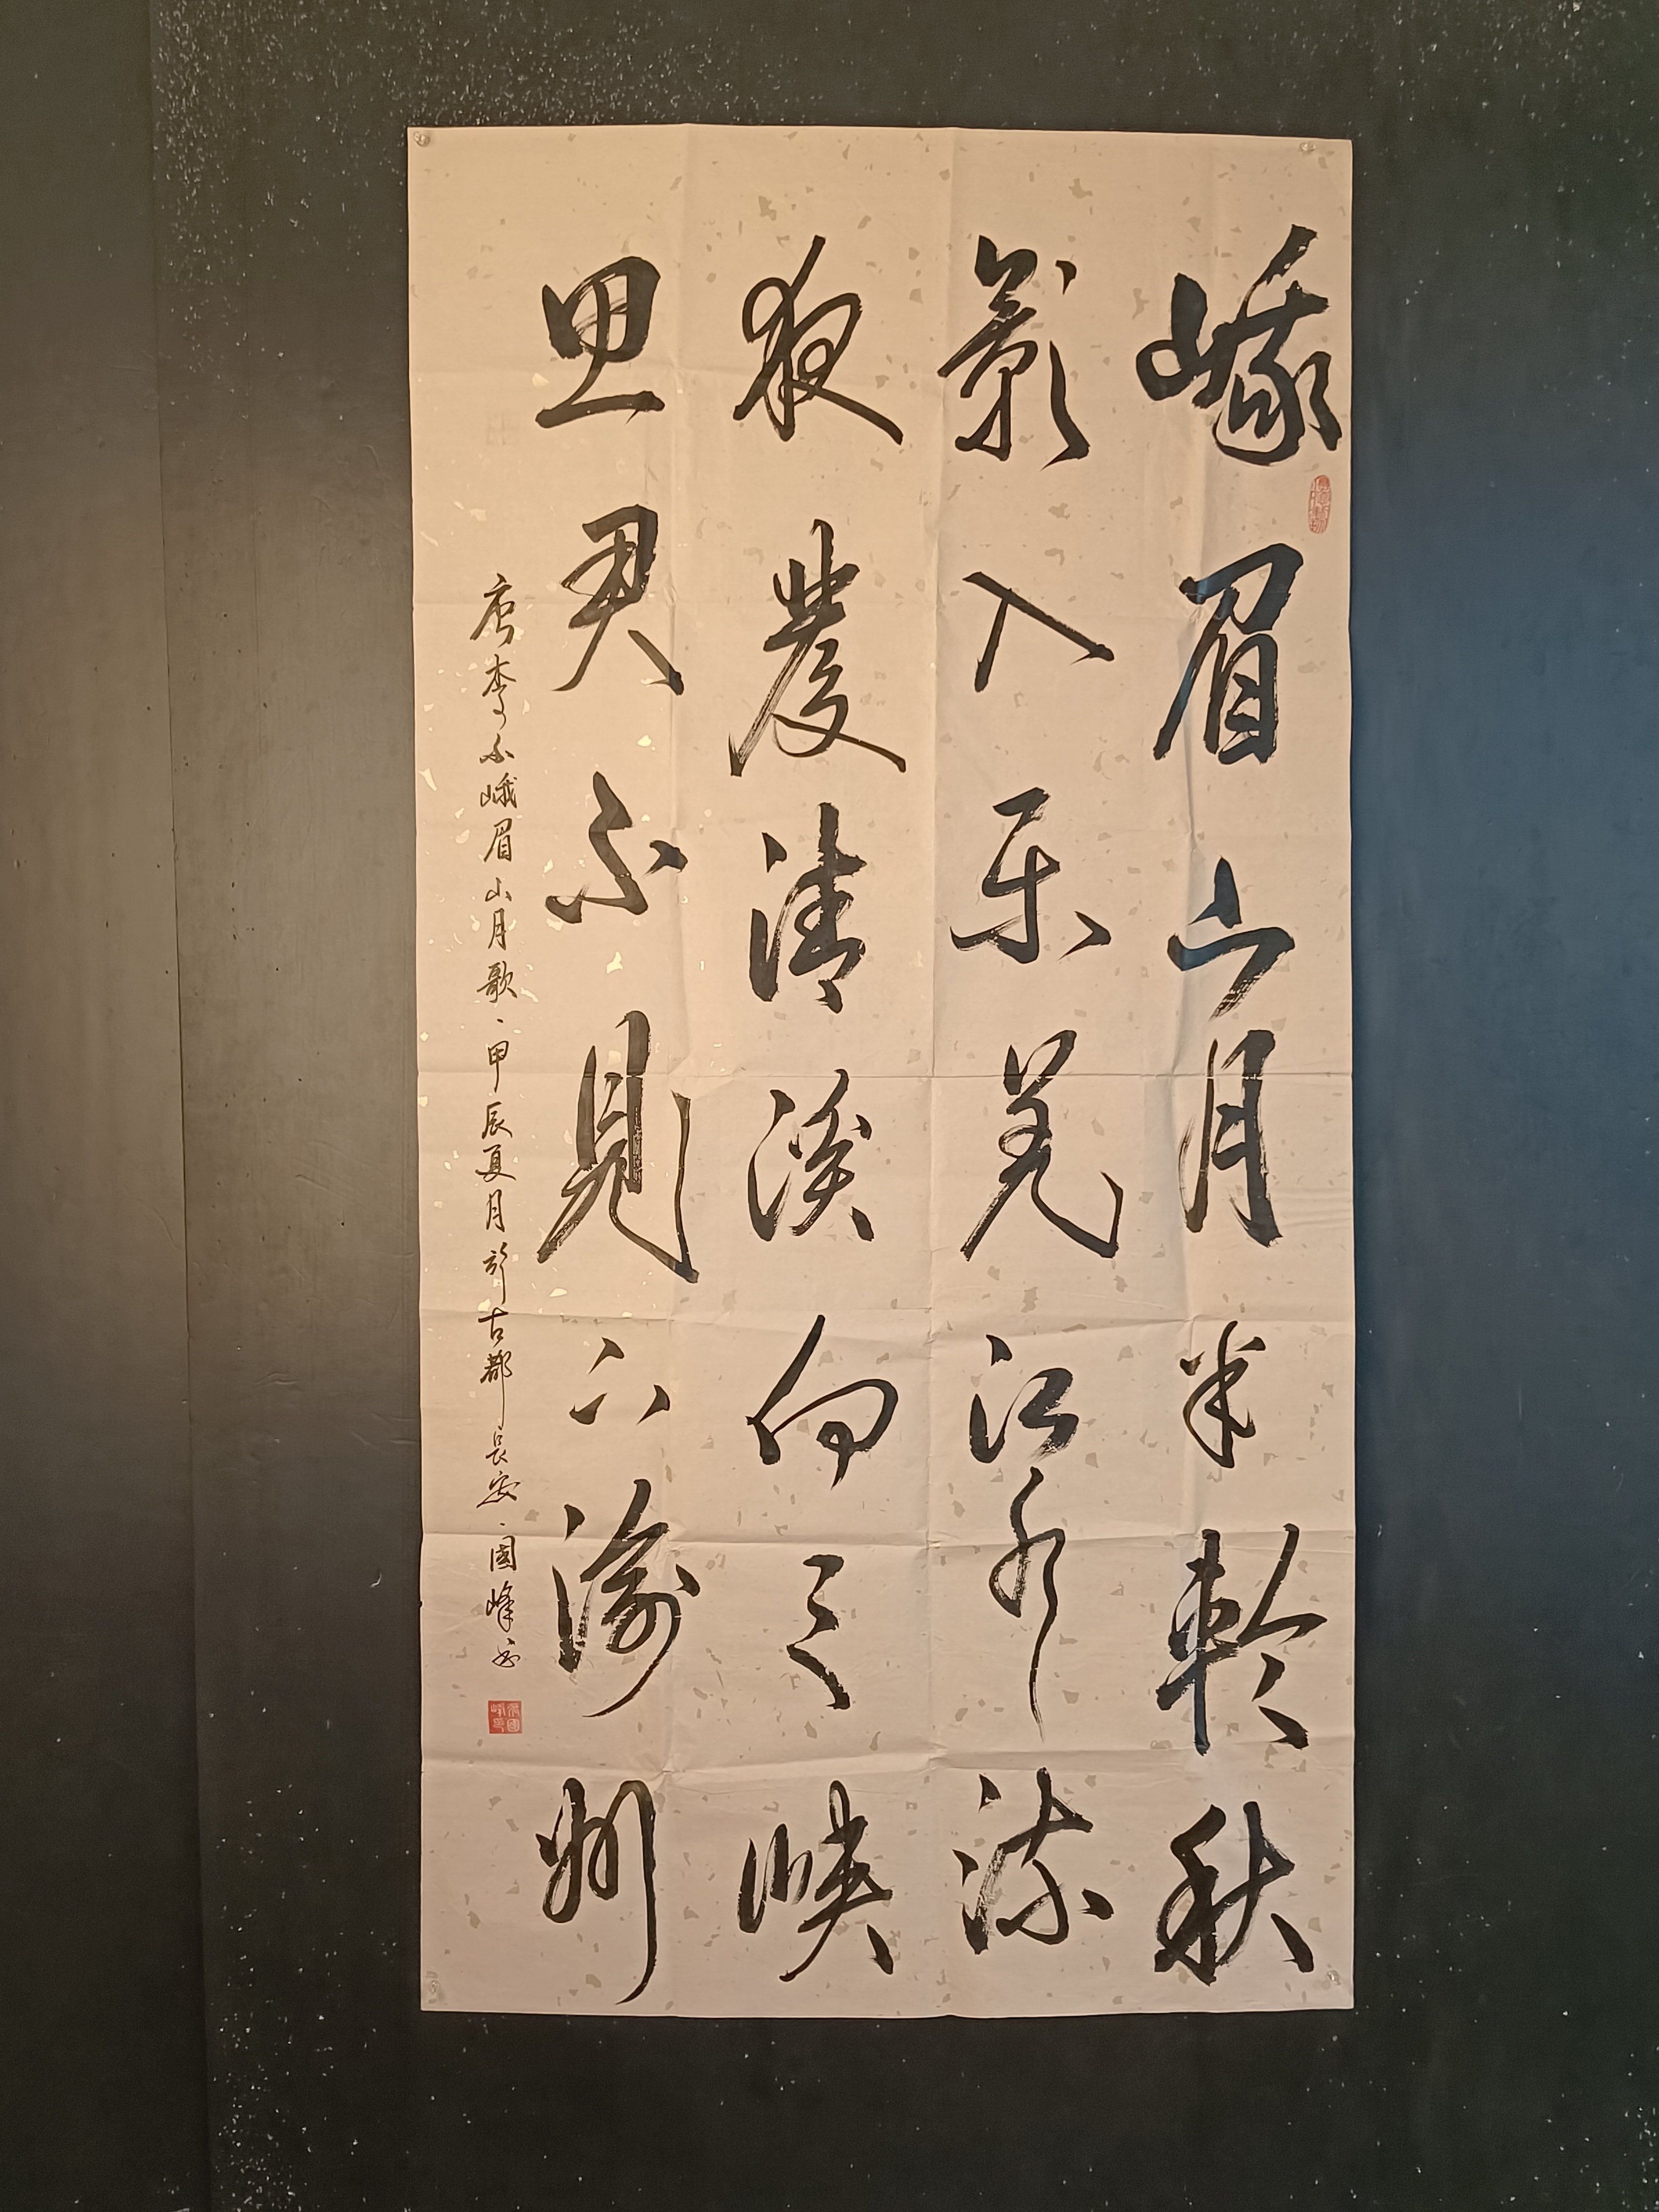 峨眉山月半輪秋
影入平羌江水流
夜發清溪向三峽
思君不見下渝州
唐李白峨眉山月歌、甲辰夏月於古都長安、國峰書